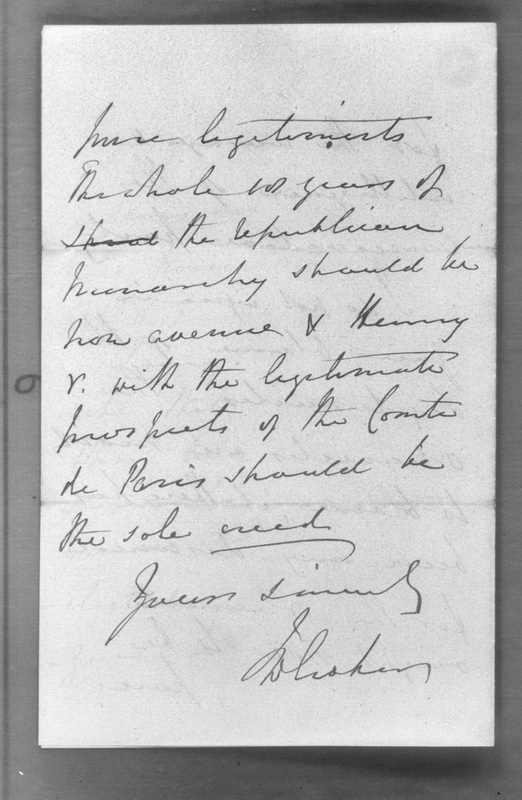 pure legitimists
The whole 18 years of
the republican
monarchy should be
non avenue & Henry
V. with the legitimate
prospects of the Comte
de Paris should be
the sole creed
Yours sincerely
JWCroker